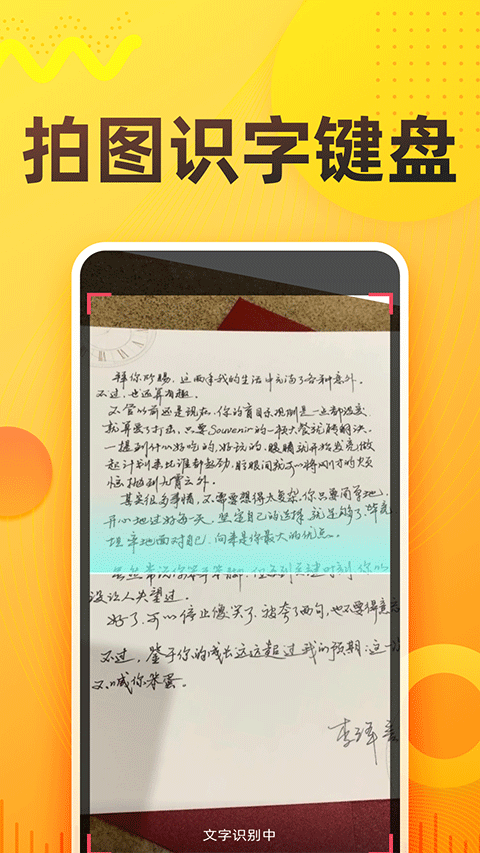 拍图识字键盘
拜你所赐,这两年我的生活中充满了各种意外。
不过,也还算有趣。
不管以前还是现在,你的盲目乐观是一点都没变
就算受了打击,只要Souvenir的一顿大餐就能解决。
一提到什么好吃的,好玩的,眼睛就开始发亮,做
起计划来比谁都起劲,眨眼间就可以将刚才的烦
恼抛到九霄云外。
其实很多事情,不需要想得太复杂,你只要简单地、
开心地过好每一天,坚定自己的选择,就足够了,毕竟
坦率地面对自己,向来是你最大的优点。
虽然常说你笨手笨脚,但
没让人失望过。
好了,可以停止傻笑了,被夸了两句,也不要得意忘
不过,鉴于你的成长远远超过我的预期,这一次
不喊你笨蛋。
李泽言
文字识别中